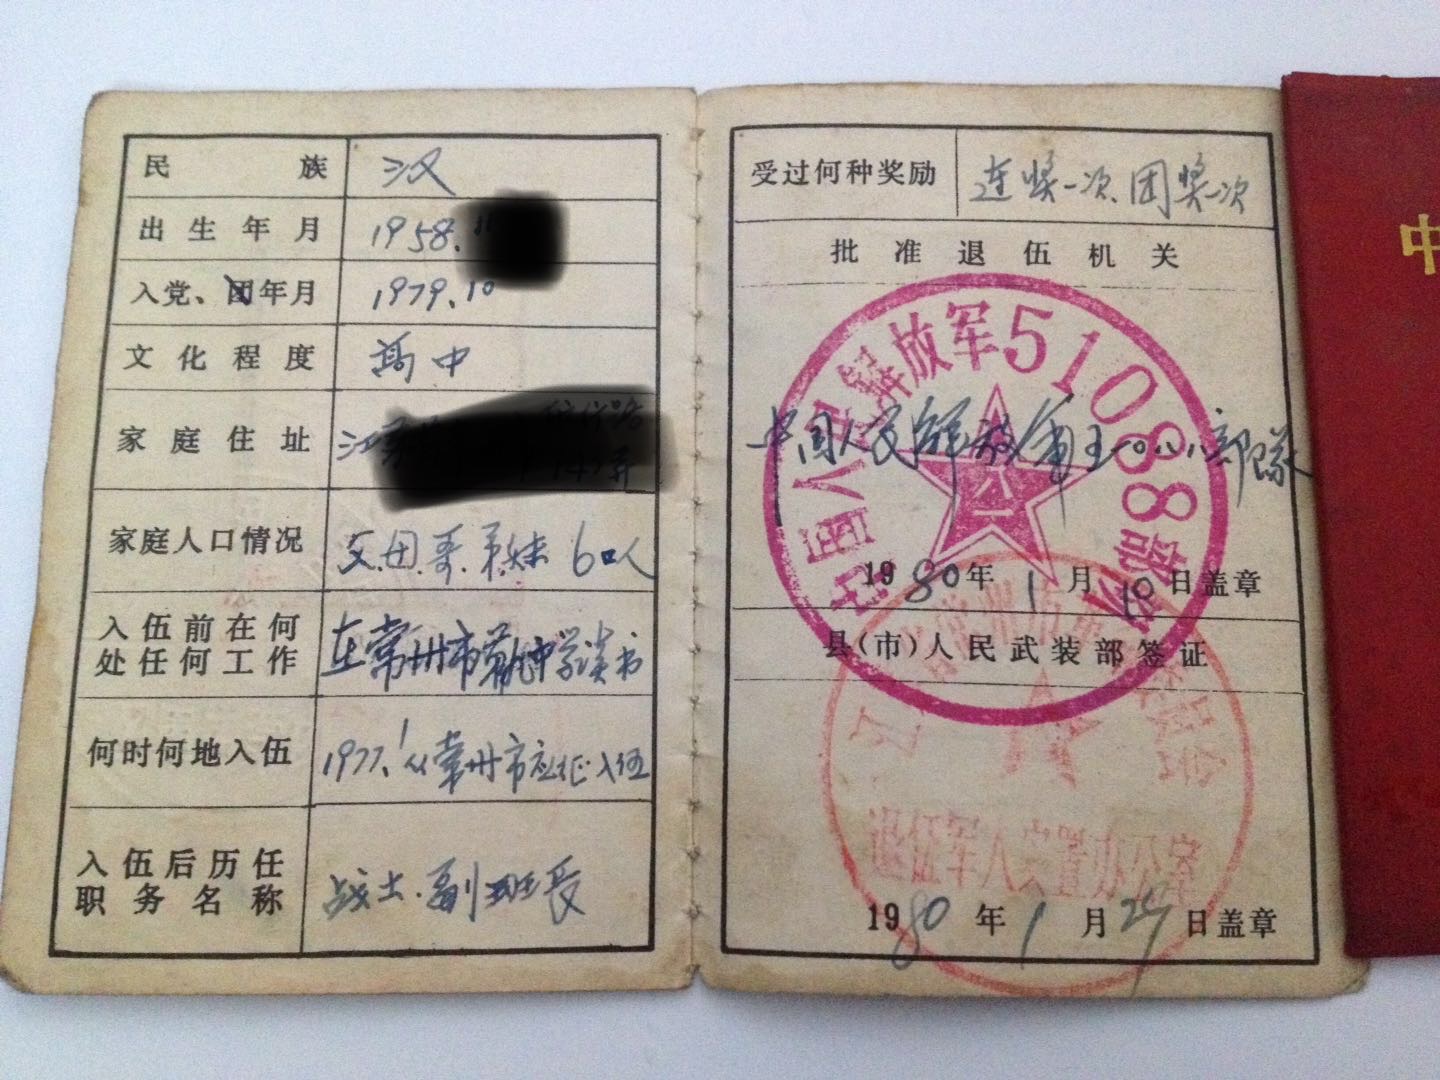 民族 汉
出生年月 1958.
入党、团年月 1979.10
文化程度 高中
家庭住址 江
家庭人口情况 父.母.哥.弟.妹 6口人
入伍前在何
处任何工作 在常州市 中学读书
何时何地入伍 1977.1从常州市应征入伍
入伍后历任
职务名称 战士.副班长
受过何种奖励 连奖一次、团奖一次
批准退伍机关
中国人民解放军51088部队
中国人民解放军五一〇八八部隊
1980年1月10日盖章
县(市)人民武装部签证
退伍军人安置办公室
1980年1月29日盖章
中